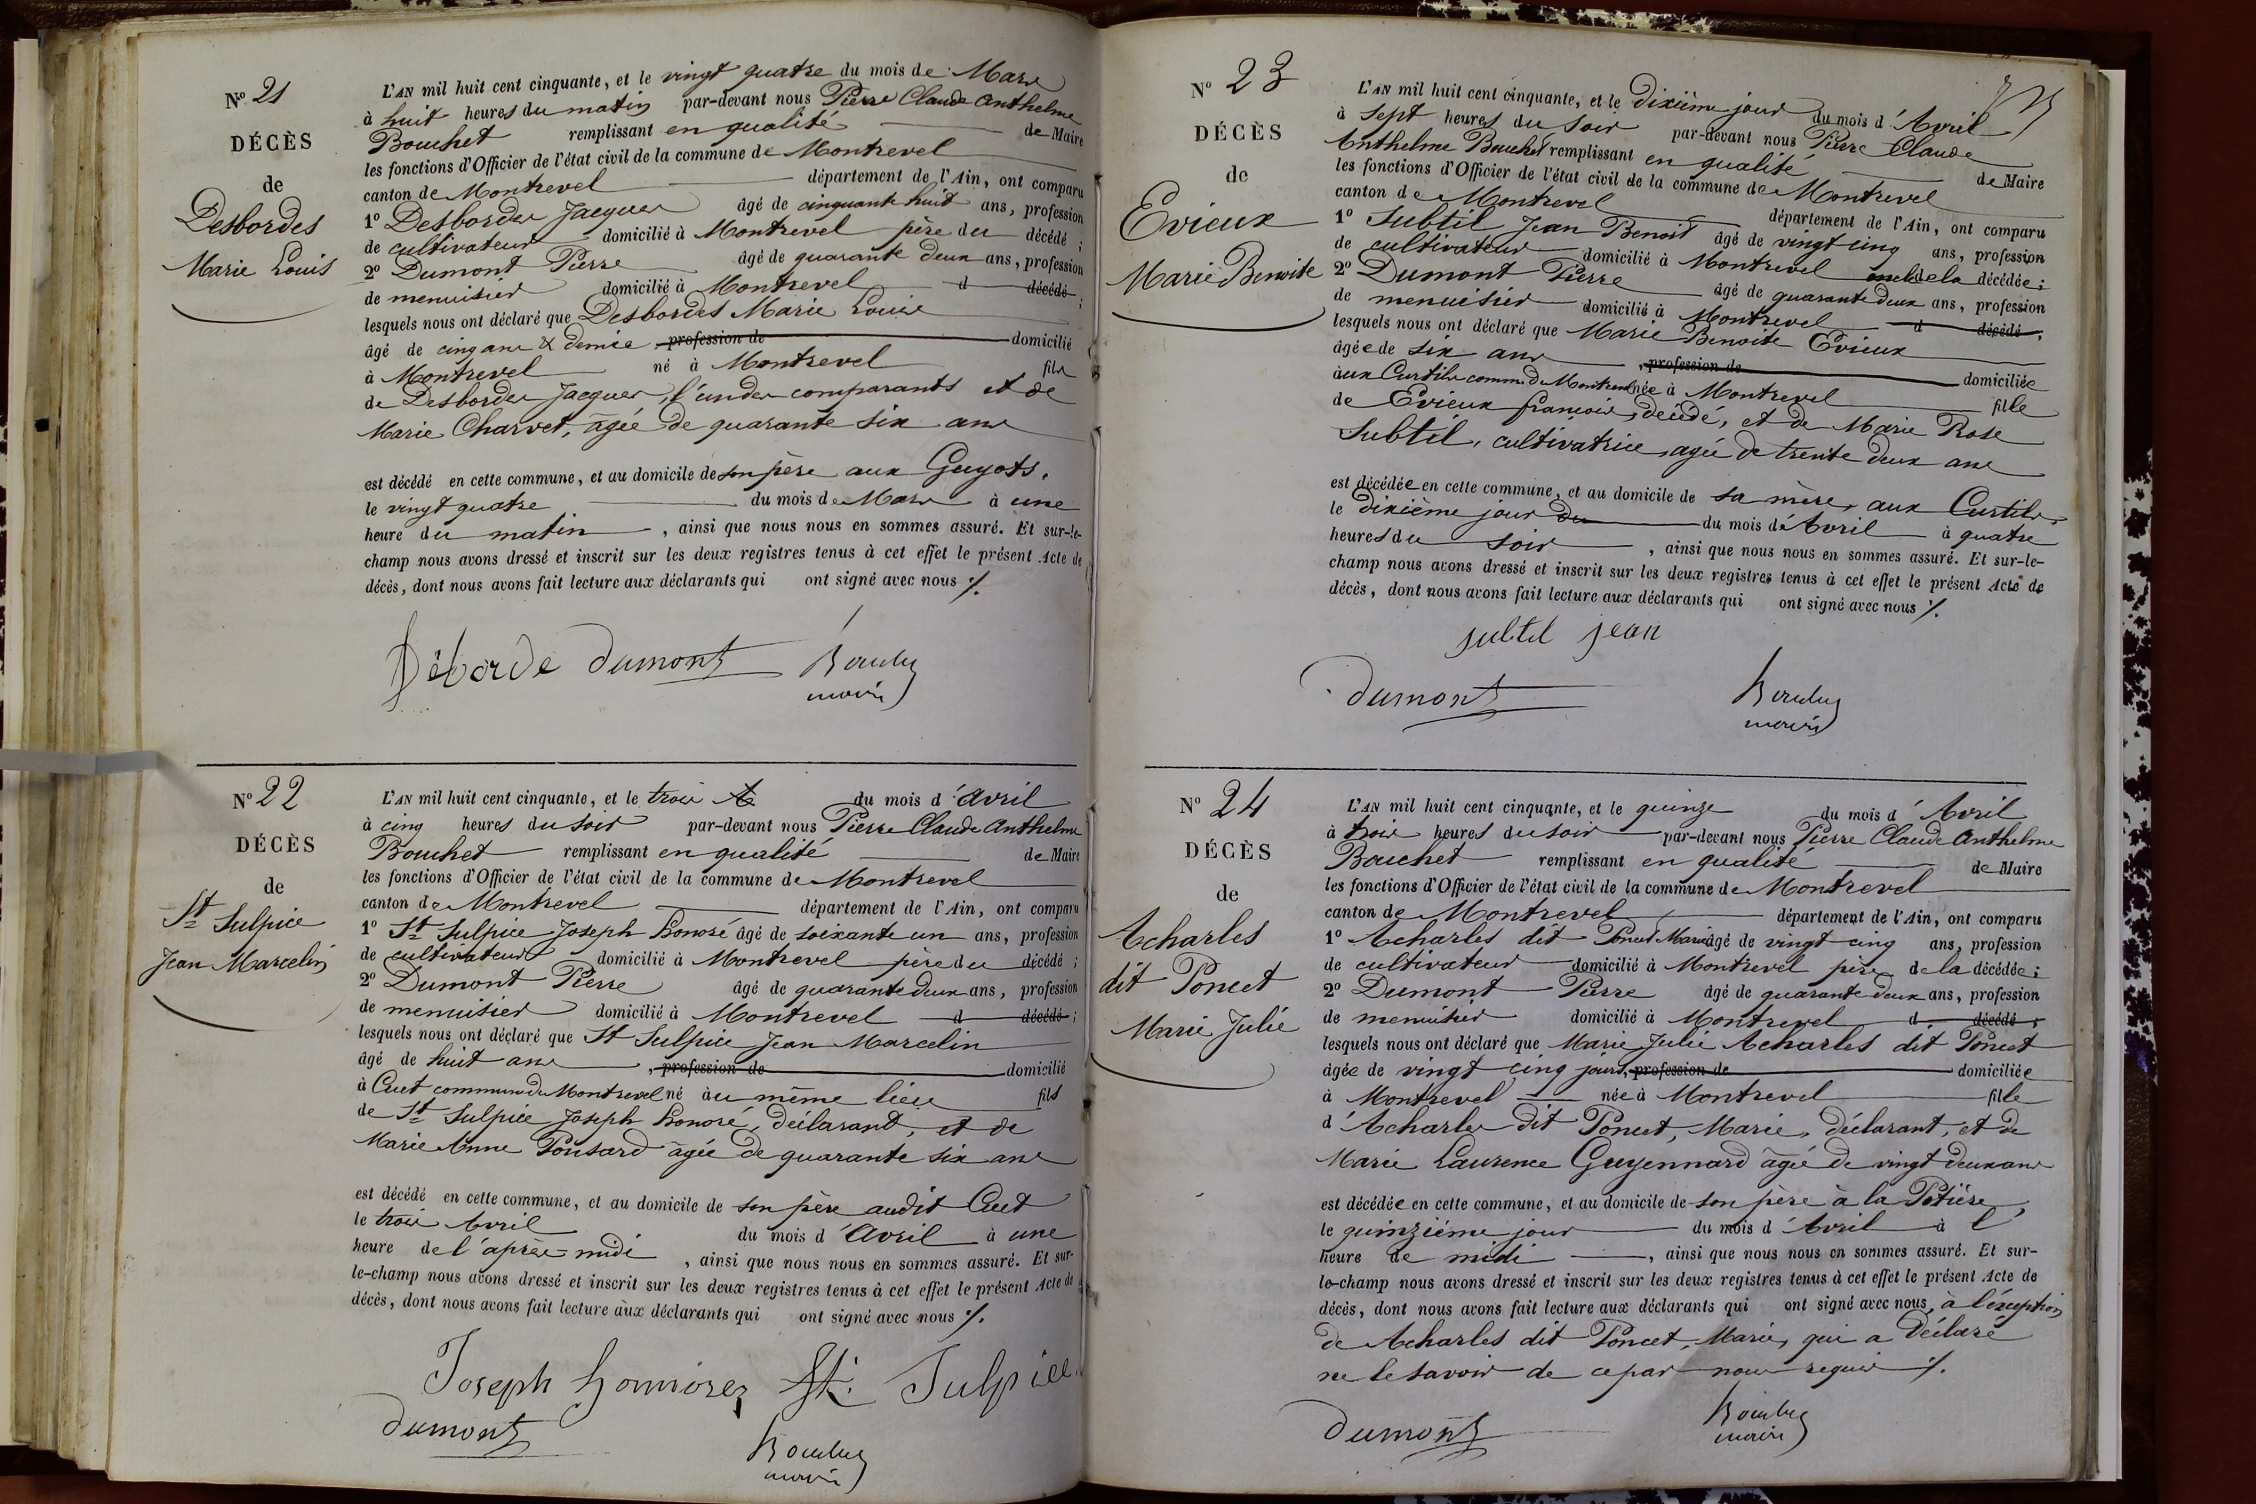 N° 21
DÉCÈS
de
Desbordes
Marie Louis
L'AN mil huit cent cinquante, et le vingt quatre du mois de Mars
à huit heures du matin par-devant nous Pierre Claude Anthelme
Bouchet remplissant en qualité de Maire
les fonctions d'Officier de l'état civil de la commune de Montrevel
canton de Montrevel département de l'Ain, ont comparu
1° Desbordes Jacques âgé de cinquante huit ans, profession
de cultivateur domicilié à Montrevel père du décédé ;
2° Dumont Pierre âgé de quarante deux ans, profession
de menuisier domicilié à Montrevel d décédé ;
lesquels nous ont déclaré que Desbordes Marie Louis
âgé de cinq ans & demie , profession de domicilié
à Montrevel né à Montrevel fils
de Desbordes Jacques, l'un des comparants et de
Marie Charvet, âgée de quarante six ans
est décédé en cette commune, et au domicile de son père aux Guyots,
le vingt quatre du mois de Mars à une
heure du matin , ainsi que nous nous en sommes assuré. Et sur-le-
champ nous avons dressé et inscrit sur les deux registres tenus à cet effet le présent Acte de
décès, dont nous avons fait lecture aux déclarants qui ont signé avec nous ./.
Déborde dumont Bouchet
maire
N° 22
DÉCÈS
de
St Sulpice
Jean Marcelin
L'AN mil huit cent cinquante, et le trois du mois d'Avril
à cinq heures du soir par-devant nous Pierre Claude Anthelme
Bouchet remplissant en qualité de Maire
les fonctions d'Officier de l'état civil de la commune de Montrevel
canton de Montrevel département de l'Ain, ont comparu
1° St Sulpice Joseph honoré âgé de soixante un ans, profession
de cultivateur domicilié à Montrevel père du décédé ;
2° Dumont Pierre âgé de quarante deux ans, profession
de menuisier domicilié à Montrevel d décédé ;
lesquels nous ont déclaré que St Sulpice Jean Marcelin
âgé de huit ans , profession de domicilié
à Cuet commune de Montrevel né au même lieu fils
de St Sulpice Joseph honoré, déclarant, et de
Marie Anne Ponsard âgée de quarante six ans
est décédé en cette commune, et au domicile de son père audit Cuet
le trois Avril du mois d'Avril à une
heure de l'après-midi , ainsi que nous nous en sommes assuré. Et sur-
le-champ nous avons dressé et inscrit sur les deux registres tenus à cet effet le présent Acte de
décès, dont nous avons fait lecture aux déclarants qui ont signé avec nous ./.
Joseph honnorez St. Sulpice
dumont Bouchet
maire
N° 23
DÉCÈS
de
Evieux
Marie Benoite
L'AN mil huit cent cinquante, et le Dixième jour du mois d'Avril
à sept heures du soir par-devant nous Pierre Claude
Anthelme Bouchet remplissant en qualité de Maire
les fonctions d'Officier de l'état civil de la commune de Montrevel
canton de Montrevel département de l'Ain, ont comparu
1° Subtil Jean Benoit âgé de vingt cinq ans, profession
de cultivateur domicilié à Montrevel oncle de la décédée ;
2° Dumont Pierre âgé de quarante deux ans, profession
de menuisier domicilié à Montrevel d décédé ;
lesquels nous ont déclaré que Marie Benoite Evieux
âgée de six ans , profession de domiciliée
aux Curtils comm. de Montrevel née à Montrevel fille
de Evieux françois, décédé, et de Marie Rose
Subtil, cultivatrice, agée de trente deux ans
est décédée en cette commune, et au domicile de sa mère, aux Curtils,
le dixième jour du du mois d'Avril à quatre
heures du soir , ainsi que nous nous en sommes assuré. Et sur-le-
champ nous avons dressé et inscrit sur les deux registres tenus à cet effet le présent Acte de
décès, dont nous avons fait lecture aux déclarants qui ont signé avec nous ./.
subtil jean
dumont Bouchet
maire
N° 24
DÉCÈS
de
Acharles
dit Poncet
Marie Julie
L'AN mil huit cent cinquante, et le quinze du mois d'Avril
à trois heures du soir par-devant nous Pierre Claude Anthelme
Bouchet remplissant en qualité de Maire
les fonctions d'Officier de l'état civil de la commune de Montrevel
canton de Montrevel département de l'Ain, ont comparu
1° Acharles dit Poncet Marie âgé de vingt cinq ans, profession
de cultivateur domicilié à Montrevel père de la décédée ;
2° Dumont Pierre âgé de quarante deux ans, profession
de menuisier domicilié à Montrevel d décédé ;
lesquels nous ont déclaré que Marie Julie Acharles dit Poncet
âgée de vingt cinq jours, profession de domiciliée
à Montrevel née à Montrevel fille
d'Acharles dit Poncet, Marie, déclarant, et de
Marie Laurence Guyennard âgée de vingt deux ans
est décédée en cette commune, et au domicile de son père à la Potière,
le quinzième jour du mois d'Avril à l'
heure de midi , ainsi que nous nous en sommes assuré. Et sur-
le-champ nous avons dressé et inscrit sur les deux registres tenus à cet effet le présent Acte de
décès, dont nous avons fait lecture aux déclarants qui ont signé avec nous, à l'éxeption
de Acharles dit Poncet, Marie, qui a déclaré
ne le savoir de ce par nous requis ./.
dumont Bouchet
maire